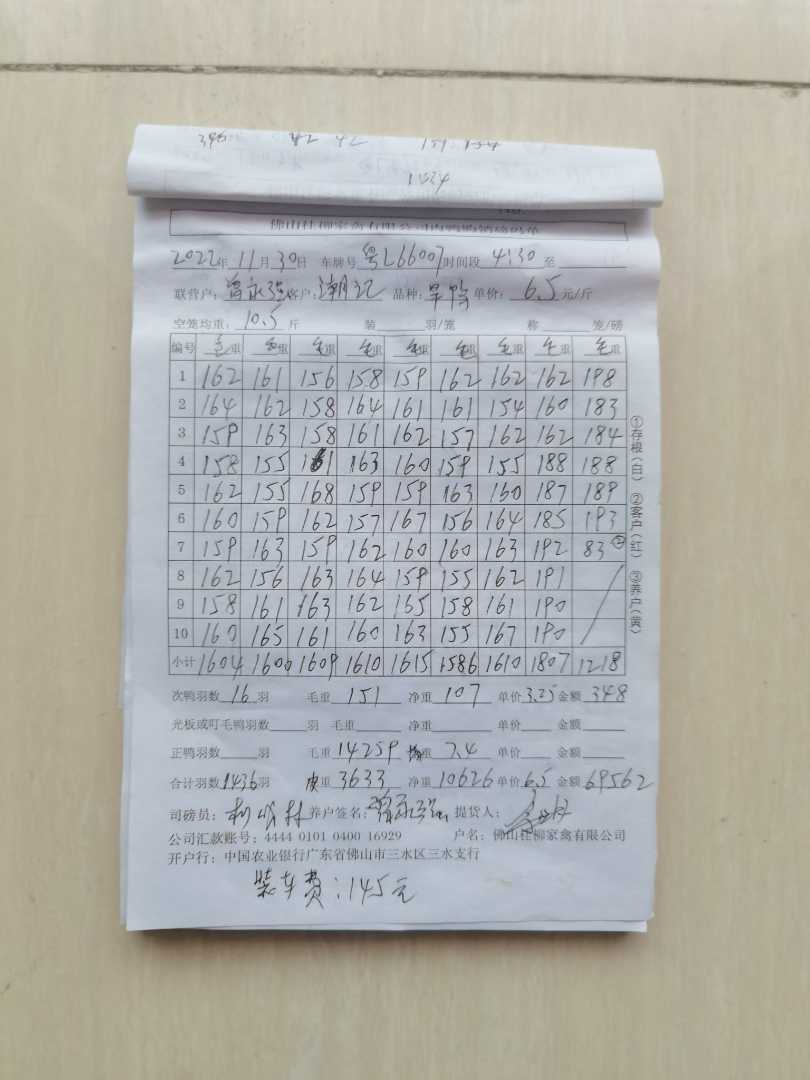 398 42 42 151 154
1434
2022年11月30日 车牌号 粤L66007 时间段 4:30 至
联营户: 曾永强 客户: 潮记 品种: 旱鸭 单价: 6.5 元/斤
空笼均重: 10.5 斤 装 羽/笼 称 笼/磅
编号 毛重 毛重 毛重 毛重 毛重 毛重 毛重 毛重 毛重
1 162 161 156 158 159 162 162 162 198
2 164 162 158 164 161 161 154 160 183
3 159 163 158 161 162 157 162 162 184
4 158 155 161 163 160 159 155 188 188
5 162 155 168 159 159 163 160 187 189
6 160 159 162 157 167 156 164 185 193
7 159 163 159 162 160 160 163 192 83 ②
8 162 156 163 164 159 155 162 191
9 158 161 163 162 165 158 161 190
10 160 165 161 160 163 155 167 190
小计 1604 1600 1609 1610 1615 1586 1610 1807 1218
①存根(白) ②客户(红) ③养户(黄)
次鸭羽数 16 羽 毛重 151 净重 107 单价 3.25 金额 348
光板或叮毛鸭羽数 羽 毛重 净重 单价 金额
正鸭羽数 羽 毛重 14259 重 7.4 单价 金额
合计羽数 1436 羽 皮重 3633 净重 10626 单价 6.5 金额 69562
司磅员: 养户签名: 曾永强 提货人:
公司汇款账号: 4444 0101 0400 16929 户名: 佛山桂柳家禽有限公司
开户行: 中国农业银行广东省佛山市三水区三水支行
装车费: 145元